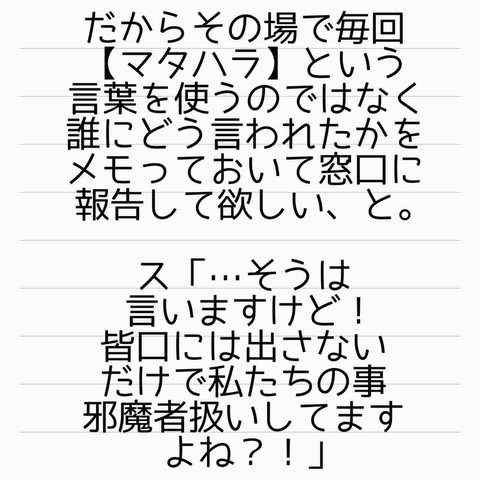 だからその場で毎回
【マタハラ】という
言葉を使うのではなく
誰にどう言われたかを
メモっておいて窓口に
報告して欲しい、と。
ス「…そうは
言いますけど！
皆口には出さない
だけで私たちの事
邪魔者扱いしてます
よね？！」